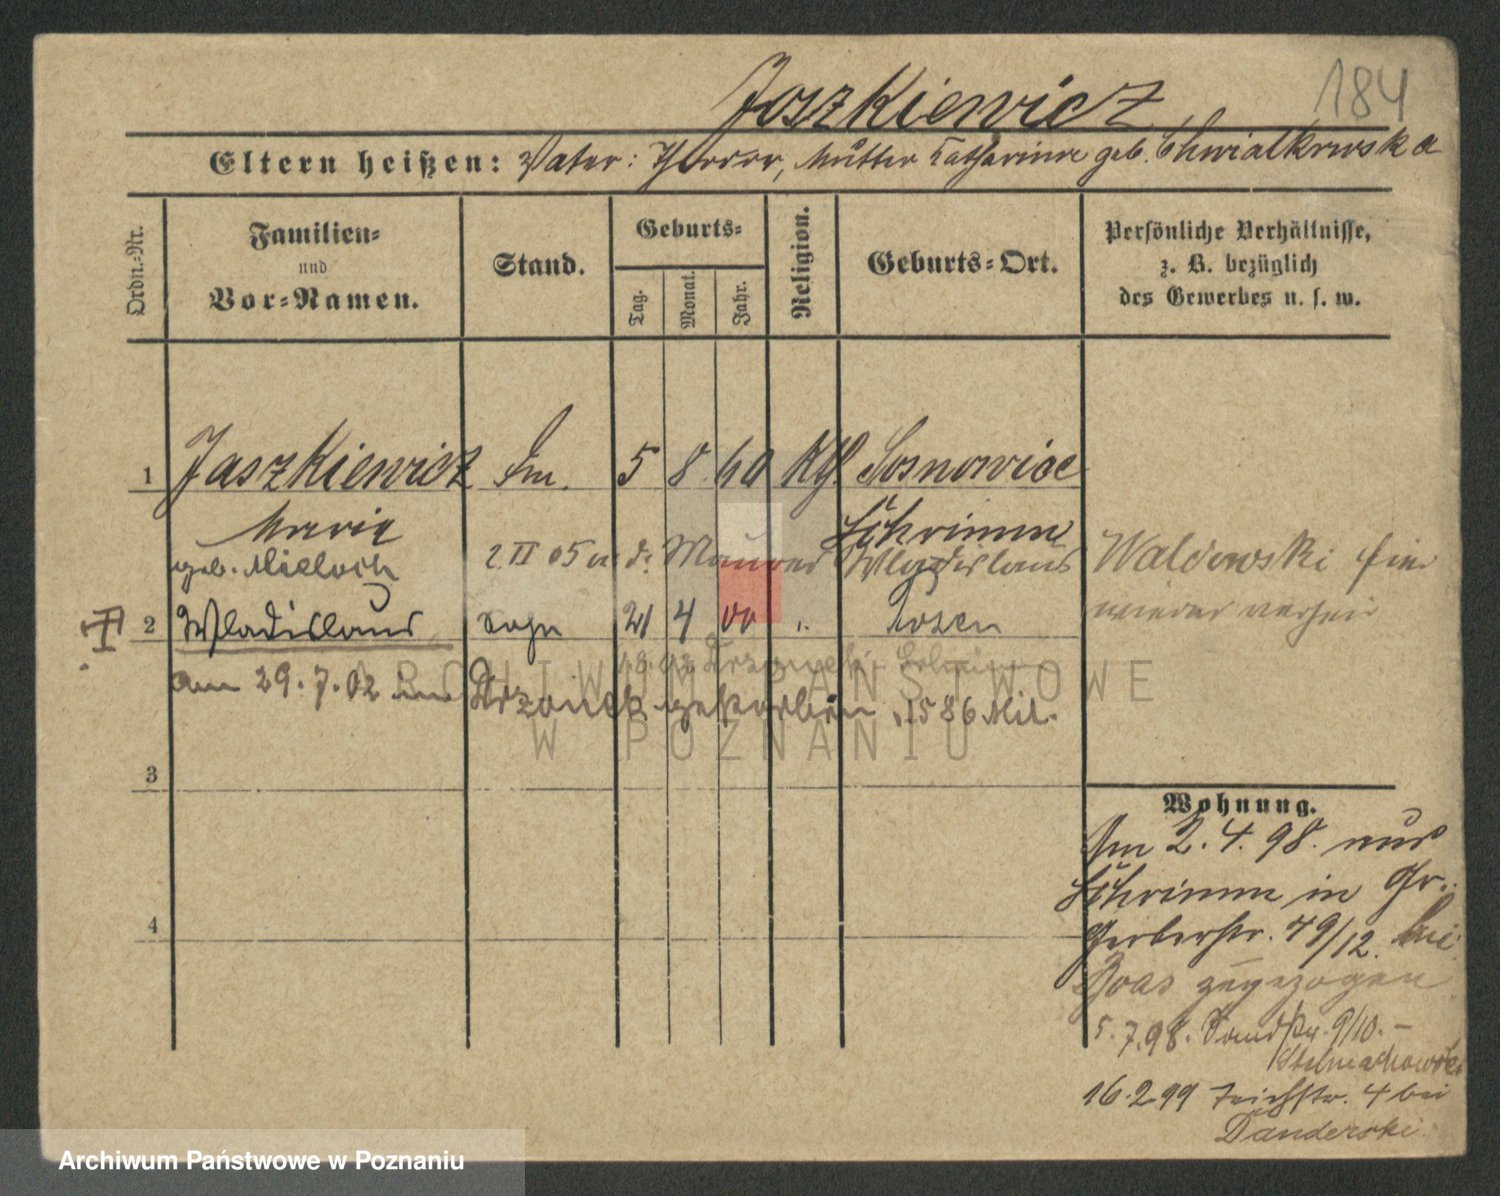 184
Jaszkiewicz
Eltern heißen: Vater: , Mutter Katharina geb. Chwialkowska
Ordn.-Nr.
Familien-
und
Vor-Namen.
Stand.
Geburts-
Tag.
Monat.
Jahr.
Religion.
Geburts-Ort.
Persönliche Verhältnisse,
z. B. bezüglich
des Gewerbes u. s. w.
1 Jaszkiewicz 5 8. 60 Kth. Sosnowice
Maria Schrimm
geb. Mieloch 2 II 05 Maurer Wladislaus
Waldowski
wieder
2 Wladislaus Sohn 21 4 00 " Posen
am 29.7.02 in gestorben, 1586 Mil.
3
Wohnung.
Am 2.4.98. aus
Schrimm in Gr.
Gerberstr. 49/12. bei
Boas zugezogen
4
5.7.98. Sandstr. 9/10. –
Stelmachowski
16.2 99 Teichstr. 4 bei
Danderski.
ARCHIWUM PAŃSTWOWE
W POZNANIU
Archiwum Państwowe w Poznaniu